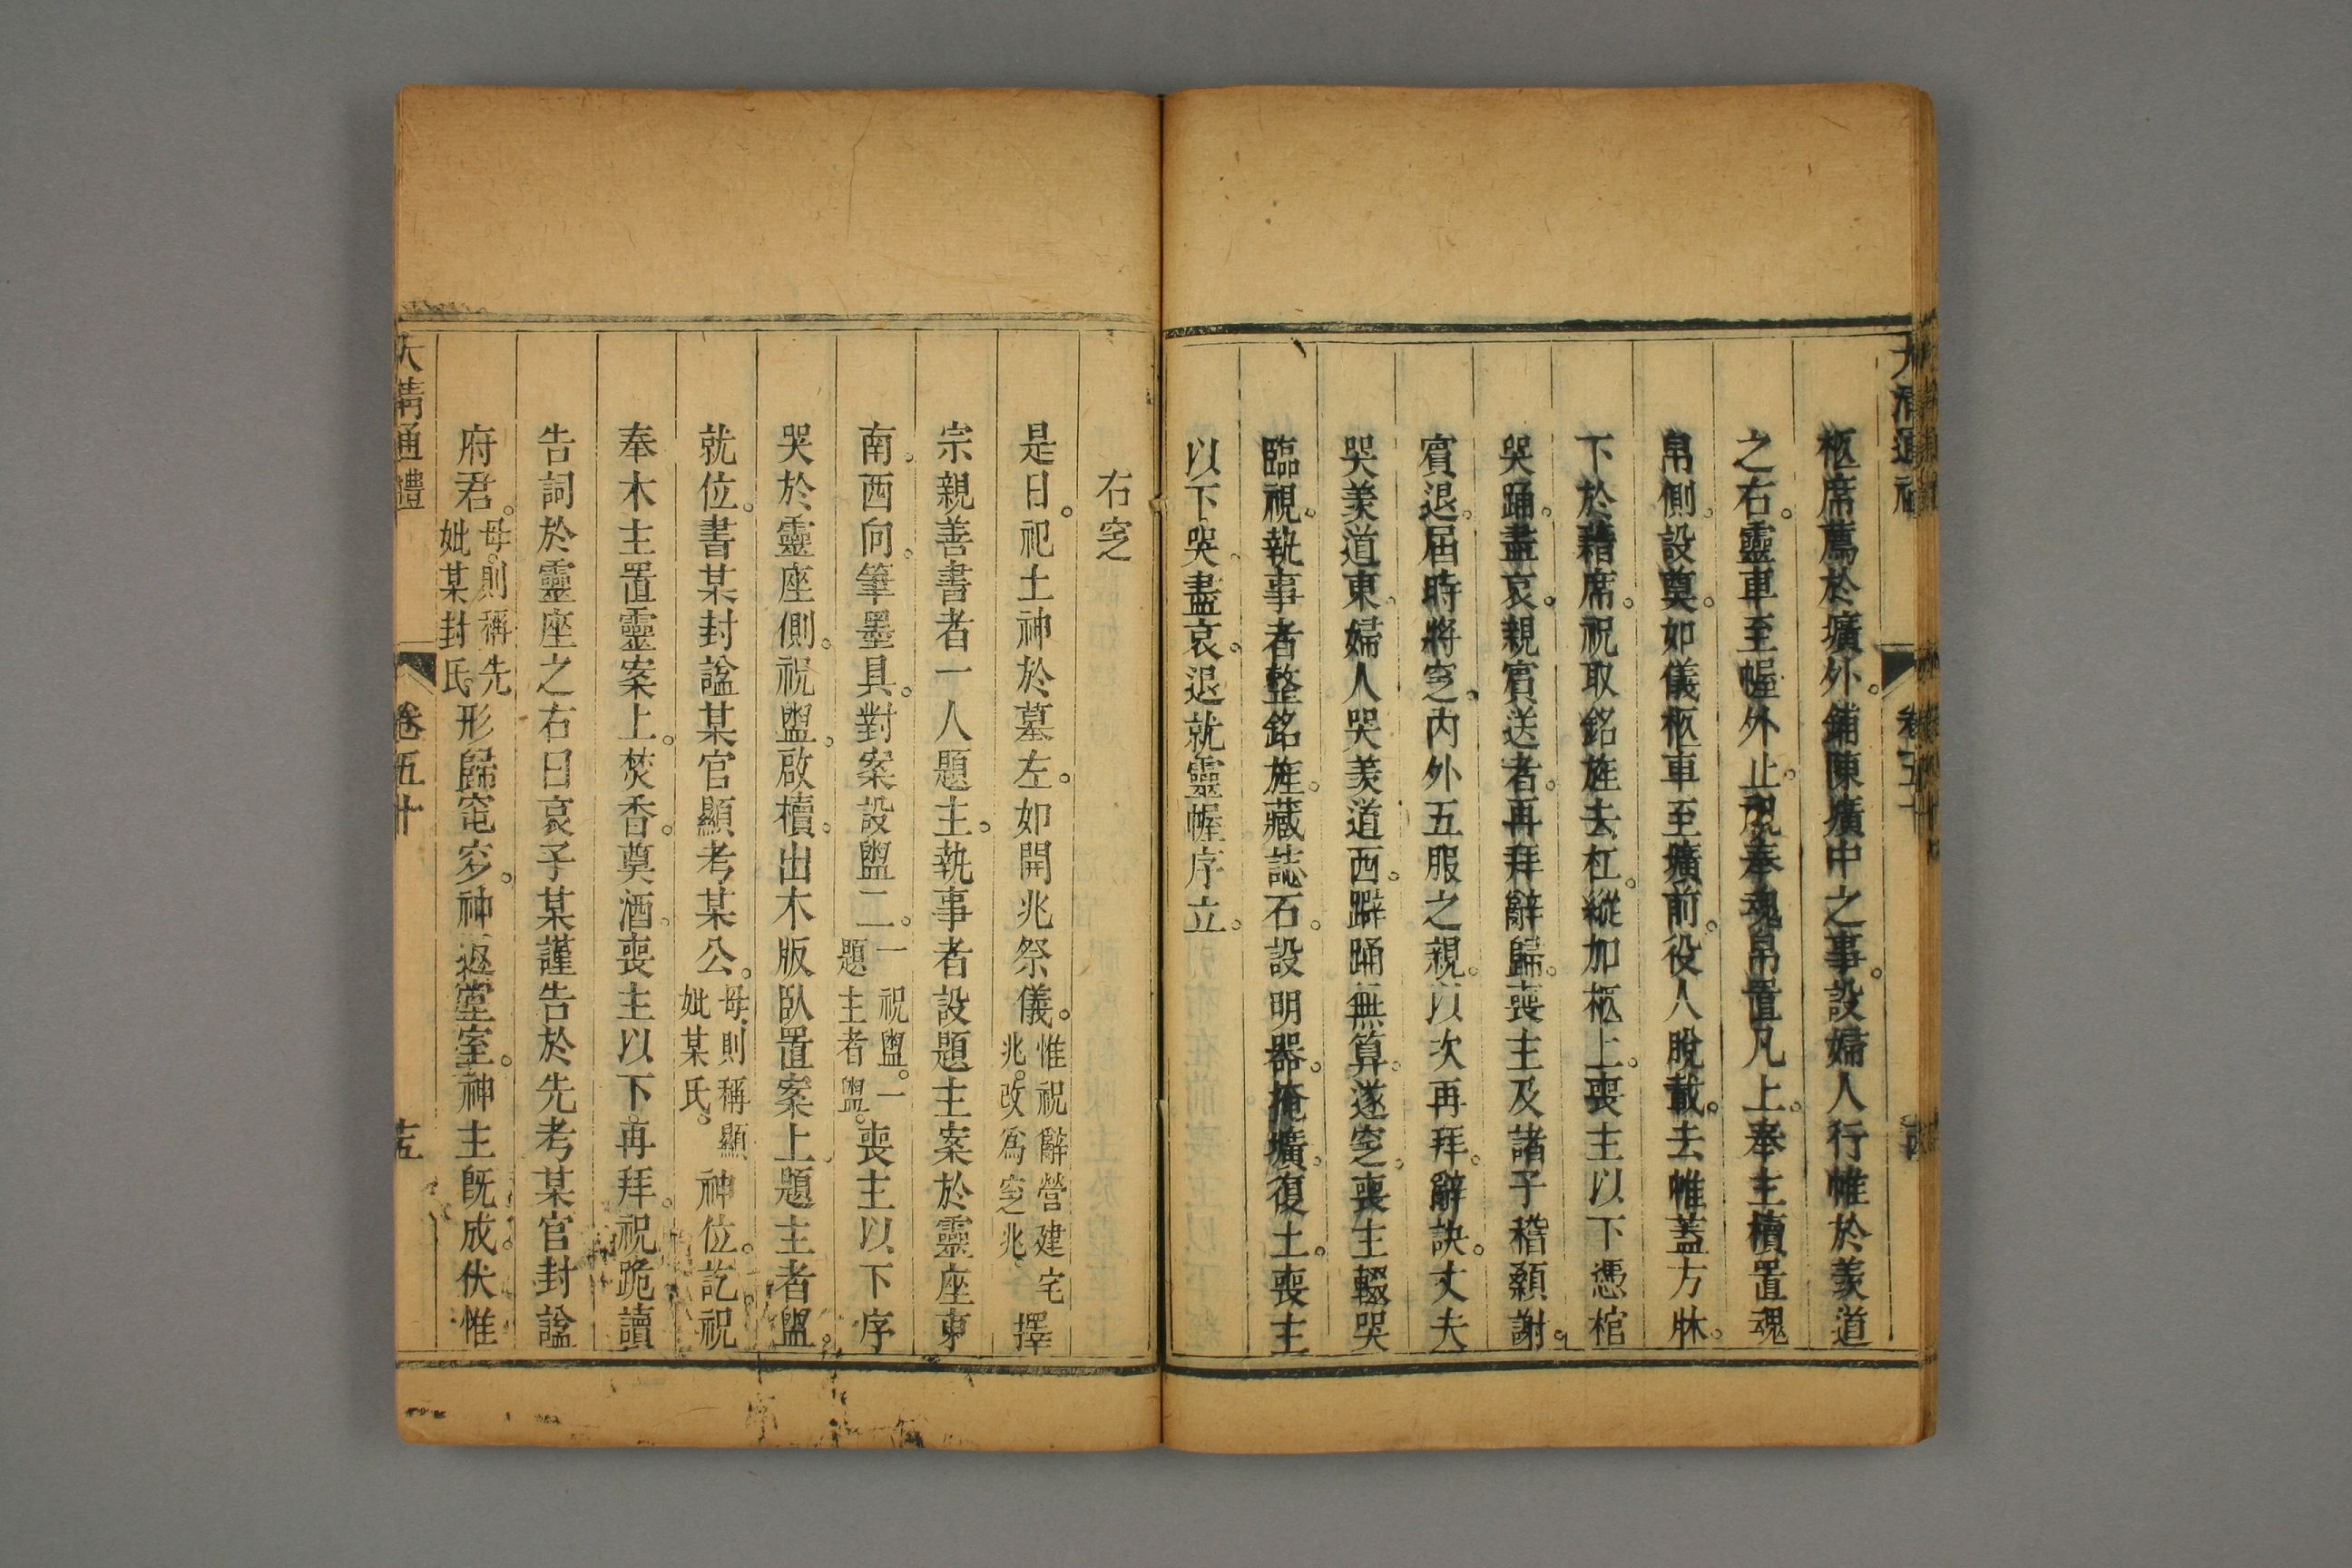 大清通禮 卷五十
柩席薦於壙外。鋪陳壙中之事。設婦人行帷於羨道
之右。靈車至幄外止。祝奉魂帛置凡上。奉主櫝置魂
帛側。設奠。如儀柩車至壙前。役人脫載。去帷蓋方牀。
下於藉席。祝取銘旌去杠。縱加柩上。喪主以下憑棺
哭踊。盡哀。親賓送者。再拜辭歸。喪主及諸子稽顙謝。
賓退。届時將窆。內外五服之親。以次再拜。辭訣。丈夫
哭羨道東。婦人哭羨道西。躃踊無算。遂窆。喪主輟哭
臨視。執事者整銘旌。藏誌石。設明器。掩壙。復土。喪主
以下哭。盡哀。退就靈幄序立。
右窆
是日。祀土神於墓左。如開兆祭儀。惟祝辭營建宅兆。改爲窆兆。擇
宗親善書者一人題主。執事者設題主案於靈座東
南。西向。筆墨具。對案設盥二。一祝盥。一題主者盥。喪主以下序
哭於靈座側。祝盥。啟櫝。出木版臥置案上。題主者盥。
就位。書某封諡某官顯考某公。母則稱顯妣某氏。神位。訖。祝
奉木主置靈案上。焚香。奠酒。喪主以下。再拜。祝跪讀
告詞於靈座之右曰哀子某謹告於先考某官封諡
府君。母。則稱先妣某封氏形歸窀穸。神返堂室。神主旣成。伏惟
大清通禮 卷五十 十五